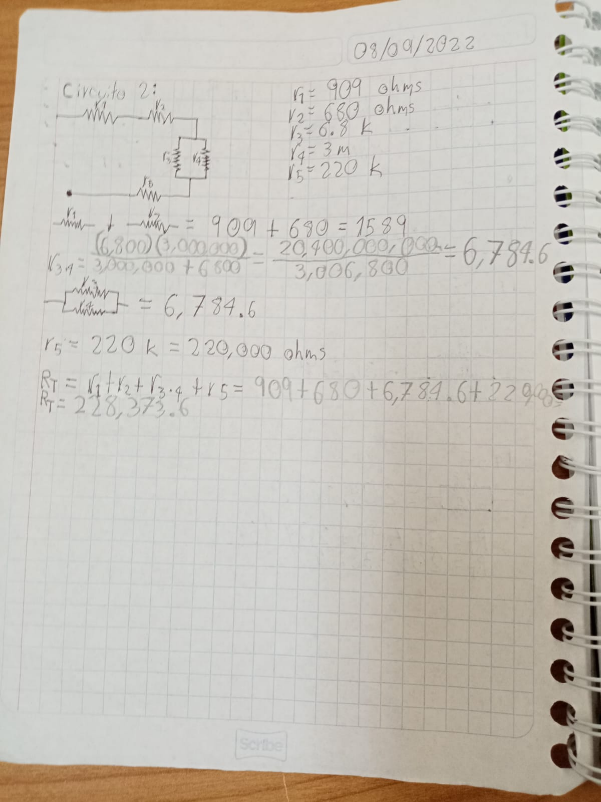 08/09/2022
Circuito 2:
r1 r2
r3 r4
r1 = 909 ohms
r2 = 680 ohms
r3 = 6.8 k
r4 = 3 m
r5 = 220 k
r1 ↓ r2 = 909 + 680 = 1589
r3·4 = (6,800)(3,000,000) / 3,000,000 + 6800 = 20,400,000,000 / 3,006,800 = 6,784.6
= 6,784.6
r5 = 220 k = 220,000 ohms
RT = r1 + r2 + r3·4 + r5 = 909 + 680 + 6,784.6 + 220,000
RT = 228,373.6
Scribe